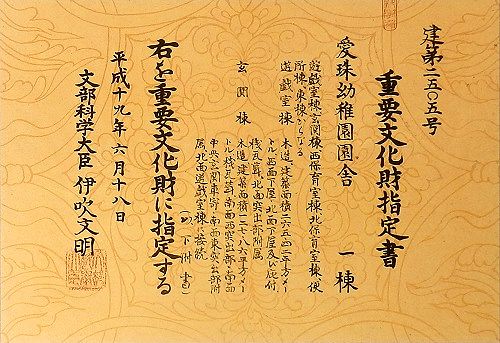 建第二五〇五号
重要文化財指定書
愛珠幼稚園園舎 一棟
遊戯室棟、玄関棟、西保育室棟、北保育室棟、便
所棟、東棟からなる
遊戯室棟 木造、建築面積二六五・二二平方メー
トル、西面下屋、北面下屋及び庇付、
桟瓦葺、北面突出部附属
玄関棟 木造、建築面積一二七・八六平方メー
トル、桟瓦葺、南面西突出部、南面
中央玄関車寄、南面東突出部附
属、北西遊戯室棟に接続
(以下附書)
右を重要文化財に指定する
平成十九年六月十八日
文部科学大臣 伊吹文明